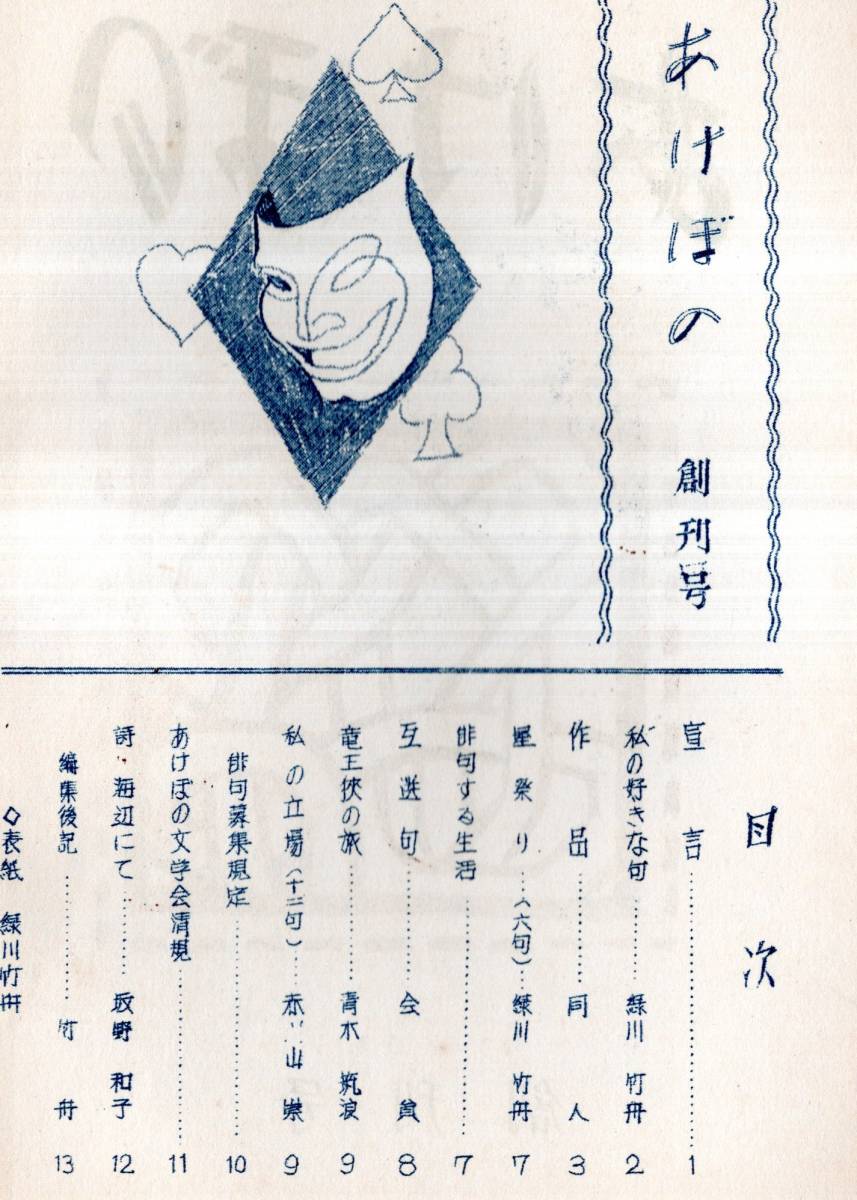 あけぼの 創刊号
目次
宣言……1
私の好きな句……緑川 竹舟 2
作品……同人 3
星祭り…(六句)…緑川 竹舟 7
俳句する生活……7
互選句……会員 8
竜王侠の旅……青木 筑浪 9
私の立場(十二句)…赤 山 崇 9
俳句募集規定……10
あけぼの文学会清規……11
詩 海辺にて……坂野 和子 12
編集後記……竹舟 13
◇表紙 緑川竹舟